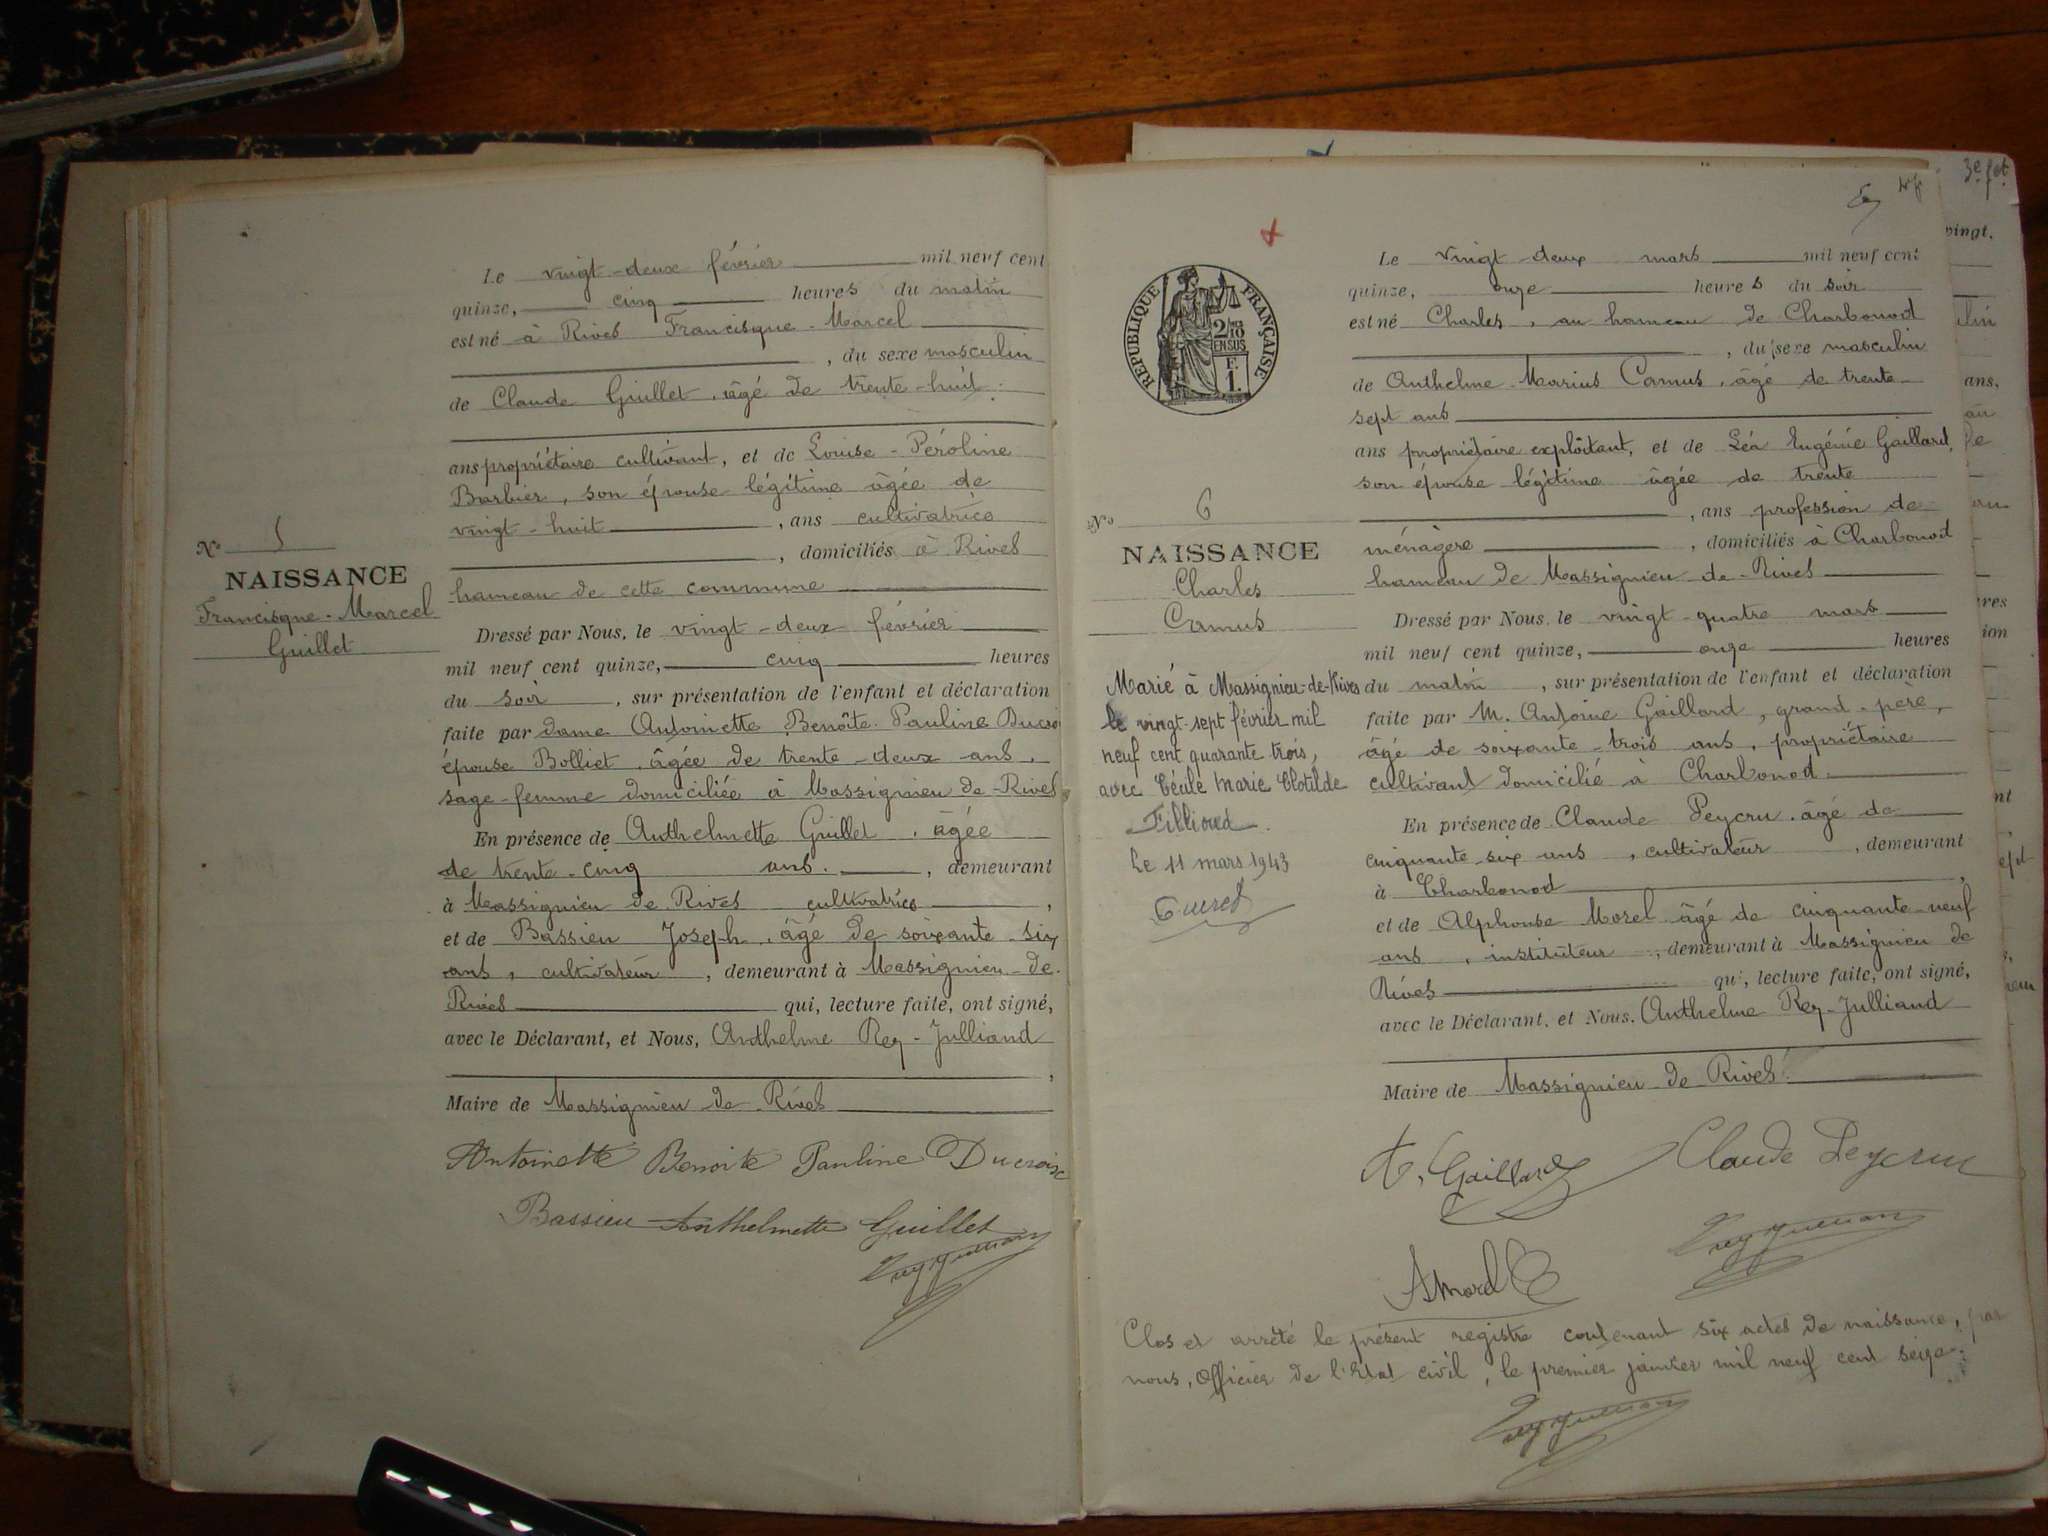 Le vingt-deux février mil neuf cent
quinze, cinq heures du matin
est né à Rives Francisque-Marcel
, du sexe masculin
de Claude Guillet, âgé de trente-huit
ans propriétaire cultivant, et de Louise-Péroline
Barbier, son épouse légitime âgée de
vingt-huit, ans cultivatrice
, domiciliés à Rives
hameau de cette commune
No 5
NAISSANCE
Francisque-Marcel
Guillet
Dressé par Nous, le vingt-deux février
mil neuf cent quinze, cinq heures
du soir, sur présentation de l'enfant et déclaration
faite par dame Antoinette Benoîte Pauline
épouse Bolliet, âgée de trente-deux ans,
sage-femme domiciliée à Massignieu-de-Rives
En présence de Anthelmette Guillet, âgée
de trente-cinq ans, demeurant
à Massignieu de Rives cultivatrice,
et de Bassieu Joseph, âgé de soixante-six
ans, cultivateur, demeurant à Massignieu-de-
Rives qui, lecture faite, ont signé,
avec le Déclarant, et Nous, Anthelme Rey-Julliand
,
Maire de Massignieu-de-Rives
Antoinette Benoite Pauline Ducroix
Bassieu Anthelmette Guillet
3e
RÉPUBLIQUE FRANÇAISE
2/10 EN SUS
F. 1.
Le vingt-deux mars mil neuf cent
quinze, onze heures du soir
est né Charles, au hameau de Charbonod
, du sexe masculin
de Anthelme-Marius Camus, âgé de trente-
sept ans
ans propriétaire exploitant, et de Léa Eugénie Gaillard,
son épouse légitime âgée de trente
, ans profession de
ménagère, domiciliés à Charbonod
hameau de Massignieu-de-Rives
No 6
NAISSANCE
Charles
Camus
Marié à Massignieu-de-Rives
le vingt-sept février mil
neuf cent quarante trois,
avec Cécile Marie Clotilde
Fillioud.
Le 11 mars 1943
Dressé par Nous, le vingt-quatre mars
mil neuf cent quinze, onze heures
du matin, sur présentation de l'enfant et déclaration
faite par M. Antoine Gaillard, grand-père,
âgé de soixante-trois ans, propriétaire
cultivant domicilié à Charbonod
En présence de Claude Peycru, âgé de
cinquante-six ans, cultivateur, demeurant
à Charbonod,
et de Alphonse Morel âgé de cinquante-neuf
ans, instituteur, demeurant à Massignieu de
Rives qui, lecture faite, ont signé,
avec le Déclarant, et Nous, Anthelme Rey-Julliand
Maire de Massignieu-de-Rives.
A. Gaillard Claude Peycru
AMorel
Clos et arrêté le présent registre contenant six actes de naissance, par
nous, Officier de l'Etat civil, le premier janvier mil neuf cent seize.